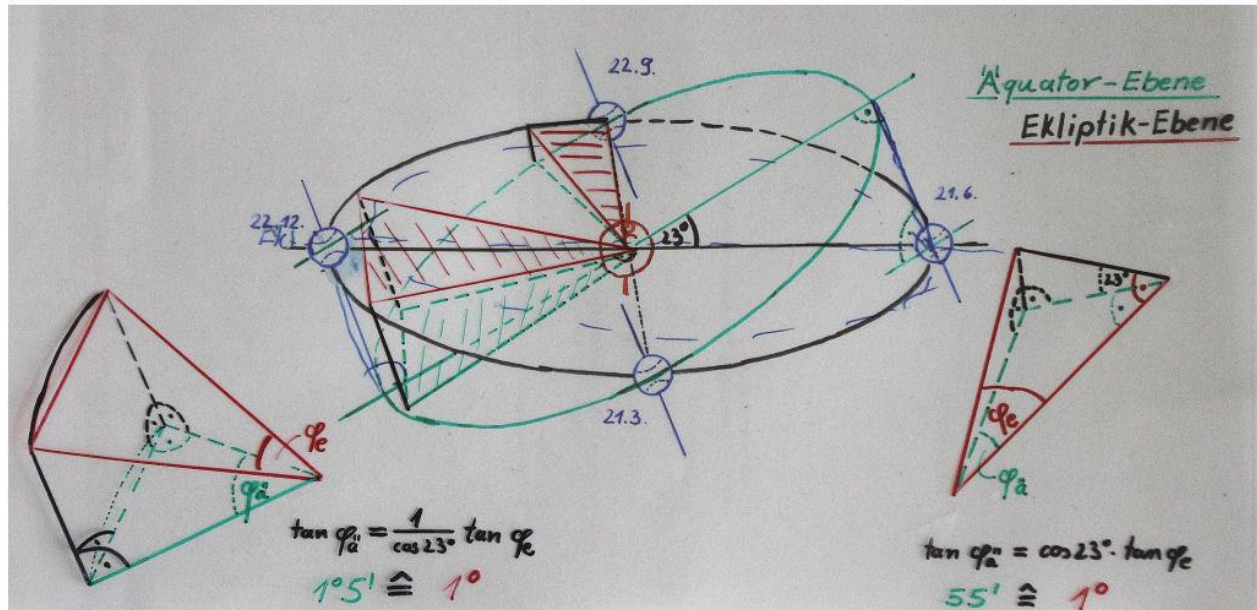 22.9.
Äquator-Ebene
Ekliptik-Ebene
22.12.
21.6.
23°
23°
21.3.
φe
φä
φe
φä
tan φä = 1/cos 23° tan φe
1°5' ≙ 1°
tan φä = cos 23° · tan φe
55' ≙ 1°